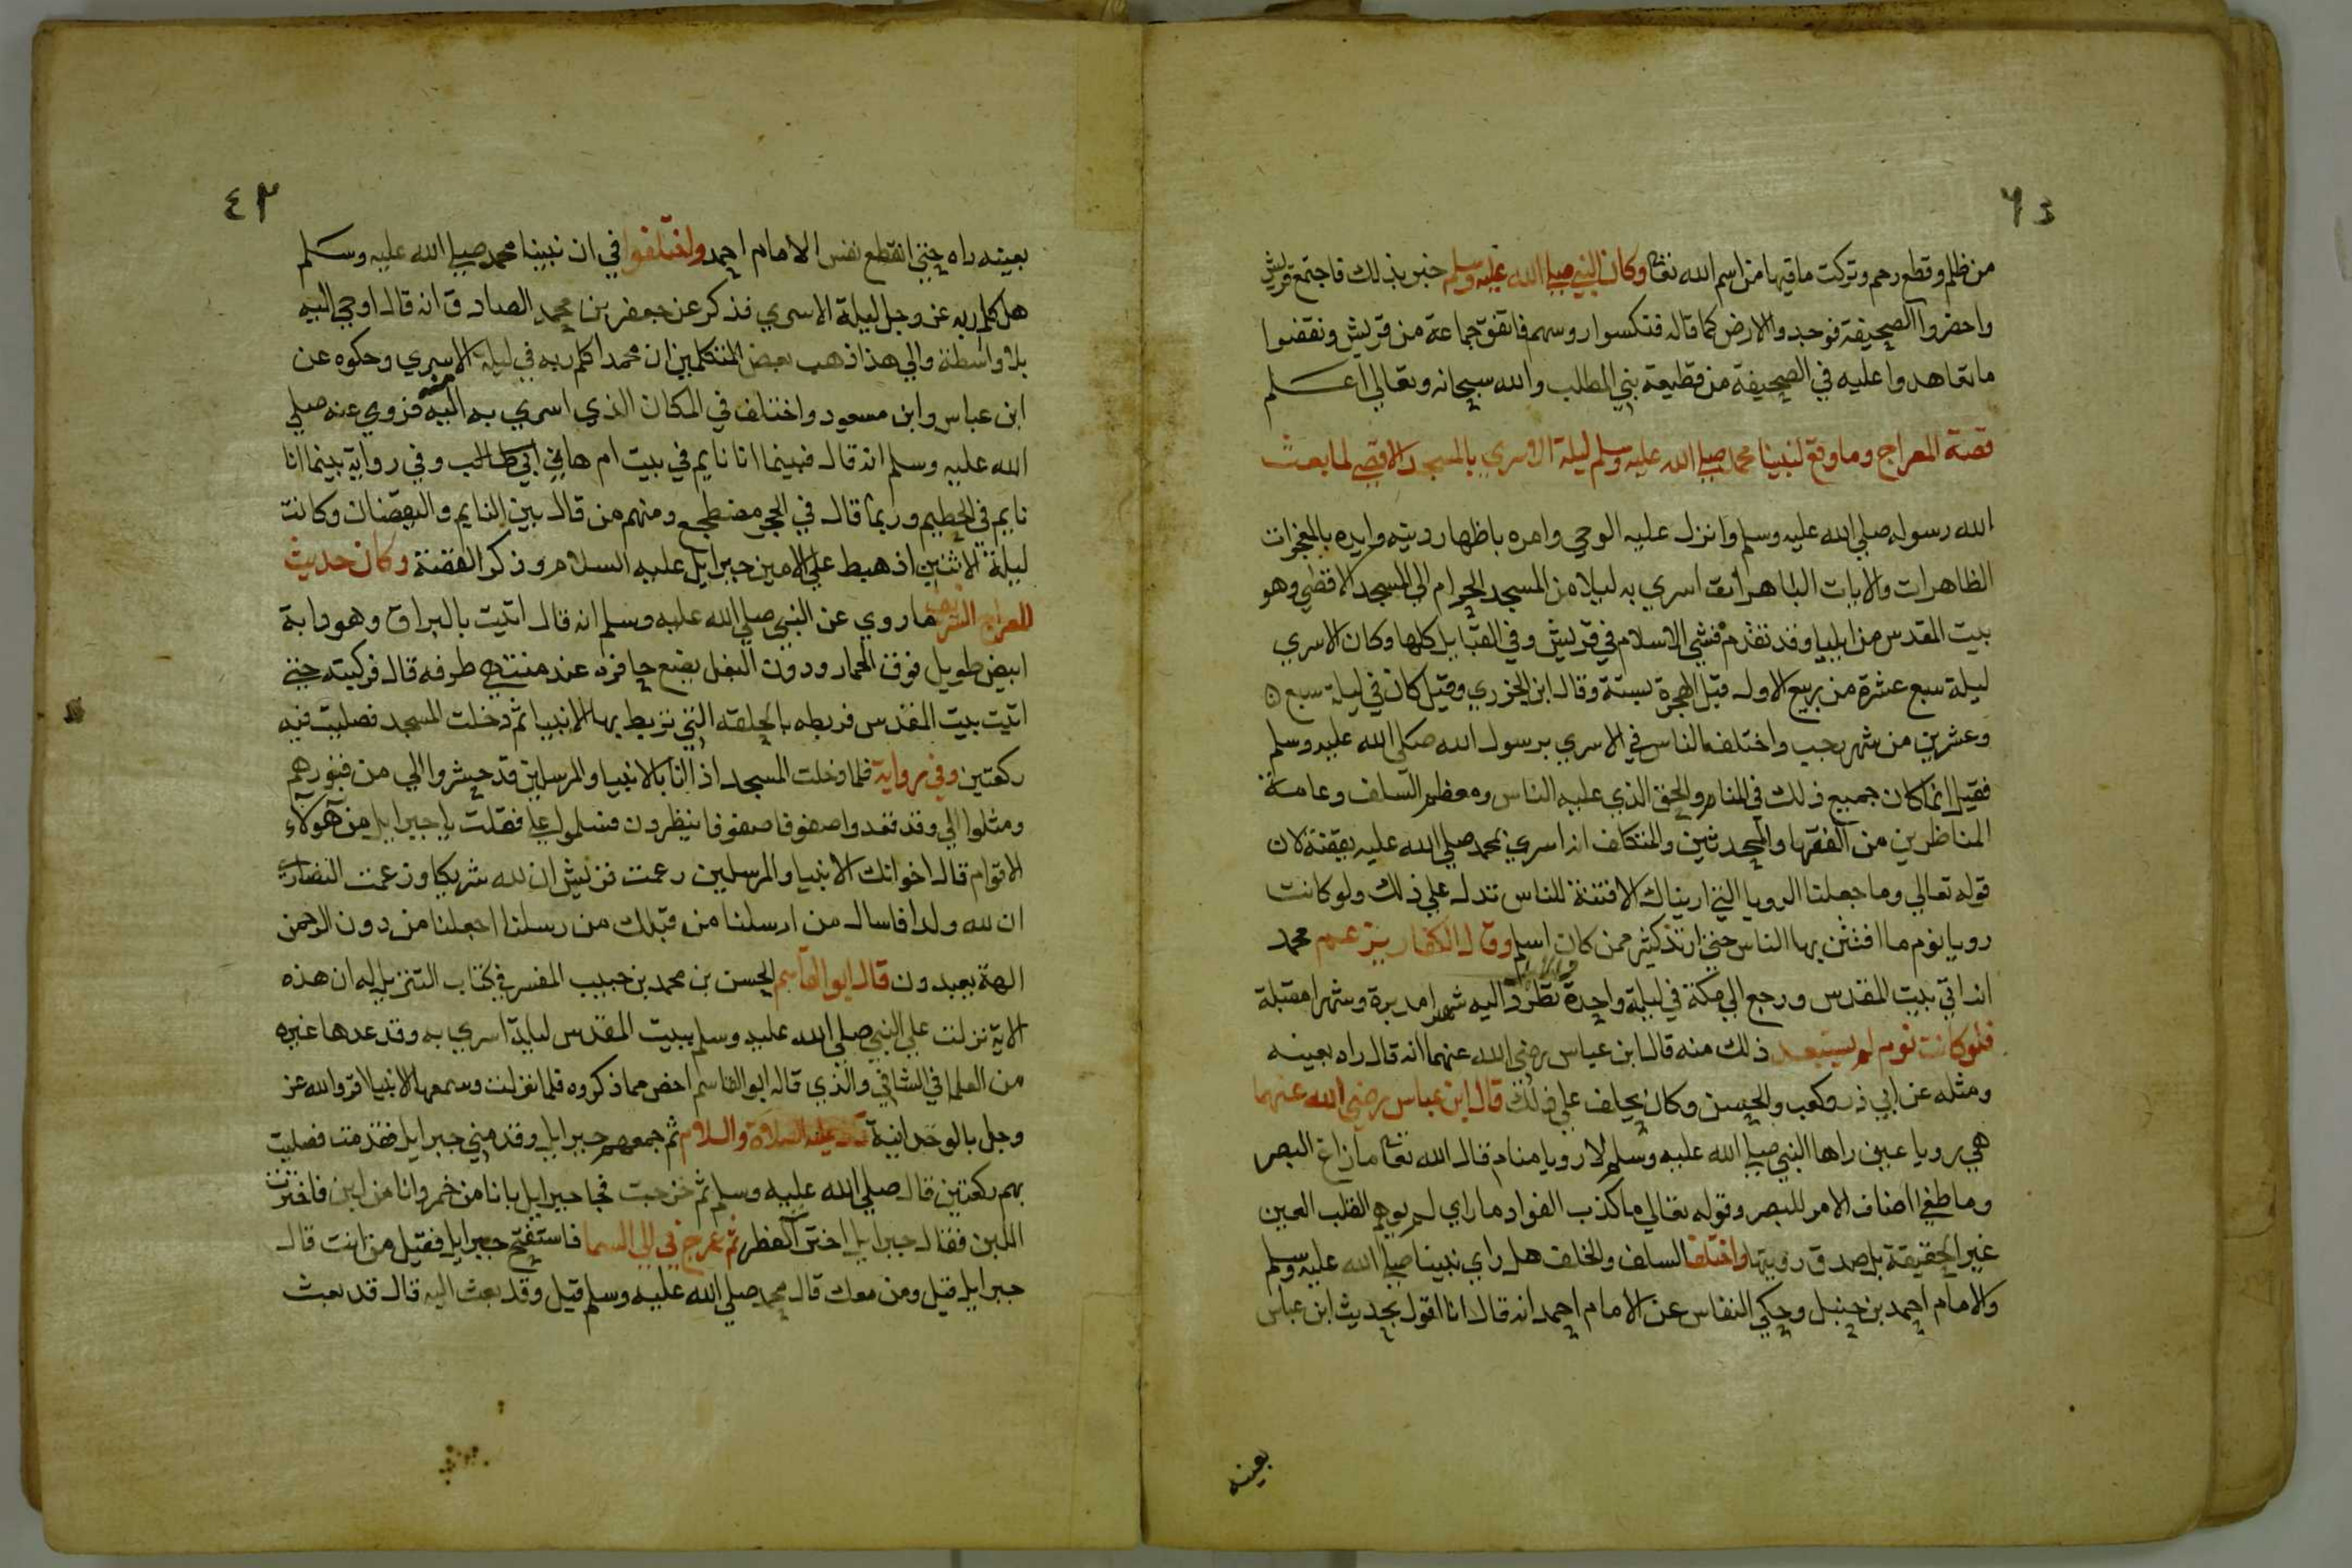 من ظلم وقطع رحم وتركت ما فيها من اسم الله تعا وكان النبي صلي الله عليه وسلم خبر بذلك فاجتمع قريش
واحضروا الصحيفة فوجد والارض كما قاله فنكسوا روسهم فاتفق جماعة من قريش ونقضوا
ما تعاهدوا عليه في الصحيفة من قطيعة بني المطلب والله سبحانه وتعالي اعلم
قصة المعراج وما وقع لنبينا محمد صلي الله عليه وسلم ليلة الاسري بالمسجد الاقصي لما بعث
الله رسوله صلي الله عليه وسلم وانزل عليه الوحي وامره باظهار دينه وايده بالمعجزات
الظاهرات والايات الباهرات اسري به ليلا من المسجد الحرام الي المسجد الاقصي وهو
بيت المقدس من ايليا وقد تقدم فشي الاسلام في قريش وفي القبايل كلها وكان الاسري
ليلة سبع عشرة من ربيع الاول قبل الهجرة بسنة وقال ابن الجزري وقيل كان في ليلة سبع
وعشرين من شهر رجب واختلف الناس في الاسري برسول الله صلي الله عليه وسلم
فقيل انما كان جميع ذلك في المنام والحق الذي عليه الناس ومعظم السلف وعامة
المناظرين من الفقها والمحدثين والمتكلف انه اسري بمحمد صلي الله عليه يقضة لان
قوله تعالي وما جعلنا الرويا التي اريناك الا فتنة للناس تدل علي ذلك ولو كانت
رويا نوم ما افتتن بها الناس حتي ارتد كثير ممن كان اسلم وقال الكفار يزعم محمد
انه اتي بيت المقدس ورجع الي مكة في ليلة واحدة تطرد اليه شهرا مدبرة وشهرا مقبلة
فلو كانت نوم لم يستبعد ذلك منه قال ابن عباس رضي الله عنهما انه قال راه بعينه
ومثله عن ابي ذر وكعب والحسن وكان يحلف علي ذلك قال ابن عباس رضي الله عنهما
هي رويا عين راها النبي صلي الله عليه وسلم لا رويا منام قال الله تعا ما زاغ البصر
وما طغي اضاف الامر للبصر وقوله تعالي ما كذب الفواد ما راي لم يوهم القلب العين
غير الحقيقة بل صدق رويتها واختلف السلف والخلف هل راي نبينا صلي الله عليه وسلم
والامام احمد بن حنبل وحكي النقاس عن الامام احمد انه قال انا اقول بحديث ابن عباس
بعينه
٤٢
بعينه راه حتي انقطع نفس الامام احمد واختلفوا في ان نبينا محمد صلي الله عليه وسلم
هل كلم ربه عز وجل ليلة الاسري فذكر عن جعفر بن محمد الصادق انه قال اوحي اليه
بلا واسطة والي هذا ذهب بعض المتكلمين ان محمدا كلم ربه في ليلة الاسري وحكوه عن
ابن عباس وابن مسعود واختلف في المكان الذي اسري به اليه منه فروي عنه صلي
الله عليه وسلم انه قال فبينما انا نايم في بيت ام هاني ابي طالب وفي رواية بينما انا
نايم في الحطيم وربما قال في الحجر مضطجع ومنهم من قال بين النايم واليقضان وكانت
ليلة الاثنين اذ هبط علي الامين جبرايل عليه السلام وذكر القصة وكان حديث
المعراج الشريف ما روي عن النبي صلي الله عليه وسلم انه قال اتيت بالبراق وهو دابة
ابيض طويل فوق الحمار ودون البغل يضع حافره عند منتهي طرفه قال فركبته حتي
اتيت بيت المقدس فربطه بالحلقه التي تربط بها الانبيا ثم دخلت المسجد فصليت فيه
ركعتين وفي رواية فلما دخلت المسجد اذ انا بالانبيا والمرسلين قد حشروا الي من قبورهم
ومثلوا الي وقد قعدوا صفوفا صفوفا ينظرون فسلموا علي فقلت يا جبرايل من هولاء
الاقوام قال اخوانك الانبيا والمرسلين زعمت قريش ان لله شريكا وزعمت النصاري
ان لله ولدا فاسال من ارسلنا من قبلك من رسلنا اجعلنا من دون الرحمن
الهة يعبدون قال ابو القاسم الحسن بن محمد بن حبيب المفسر في كتاب التنزيل له ان هذه
الاية نزلت علي النبي صلي الله عليه وسلم ببيت المقدس ليلة اسري به وقد عدها غيره
من العلما في الشافي والذي قاله ابو القاسم احض مما ذكروه فلما نزلت وسمعها الانبيا اقروا لله عز
وجل بالوحدانية قال عليه الصلاة والسلام ثم جمعهم جبرايل وقدمني جبرايل فقدمت فصليت
بهم ركعتين قال صلي الله عليه وسلم ثم خرجت فجا جبرايل بانا من خمر وانا من لبن فاخترت
اللبن فقال جبرايل اخترت الفطر ثم عرج في الي السما فاستفتح جبرايل فقيل من انت قال
جبرايل قيل ومن معك قال محمد صلي الله عليه وسلم قيل وقد بعث اليه قال قد بعث